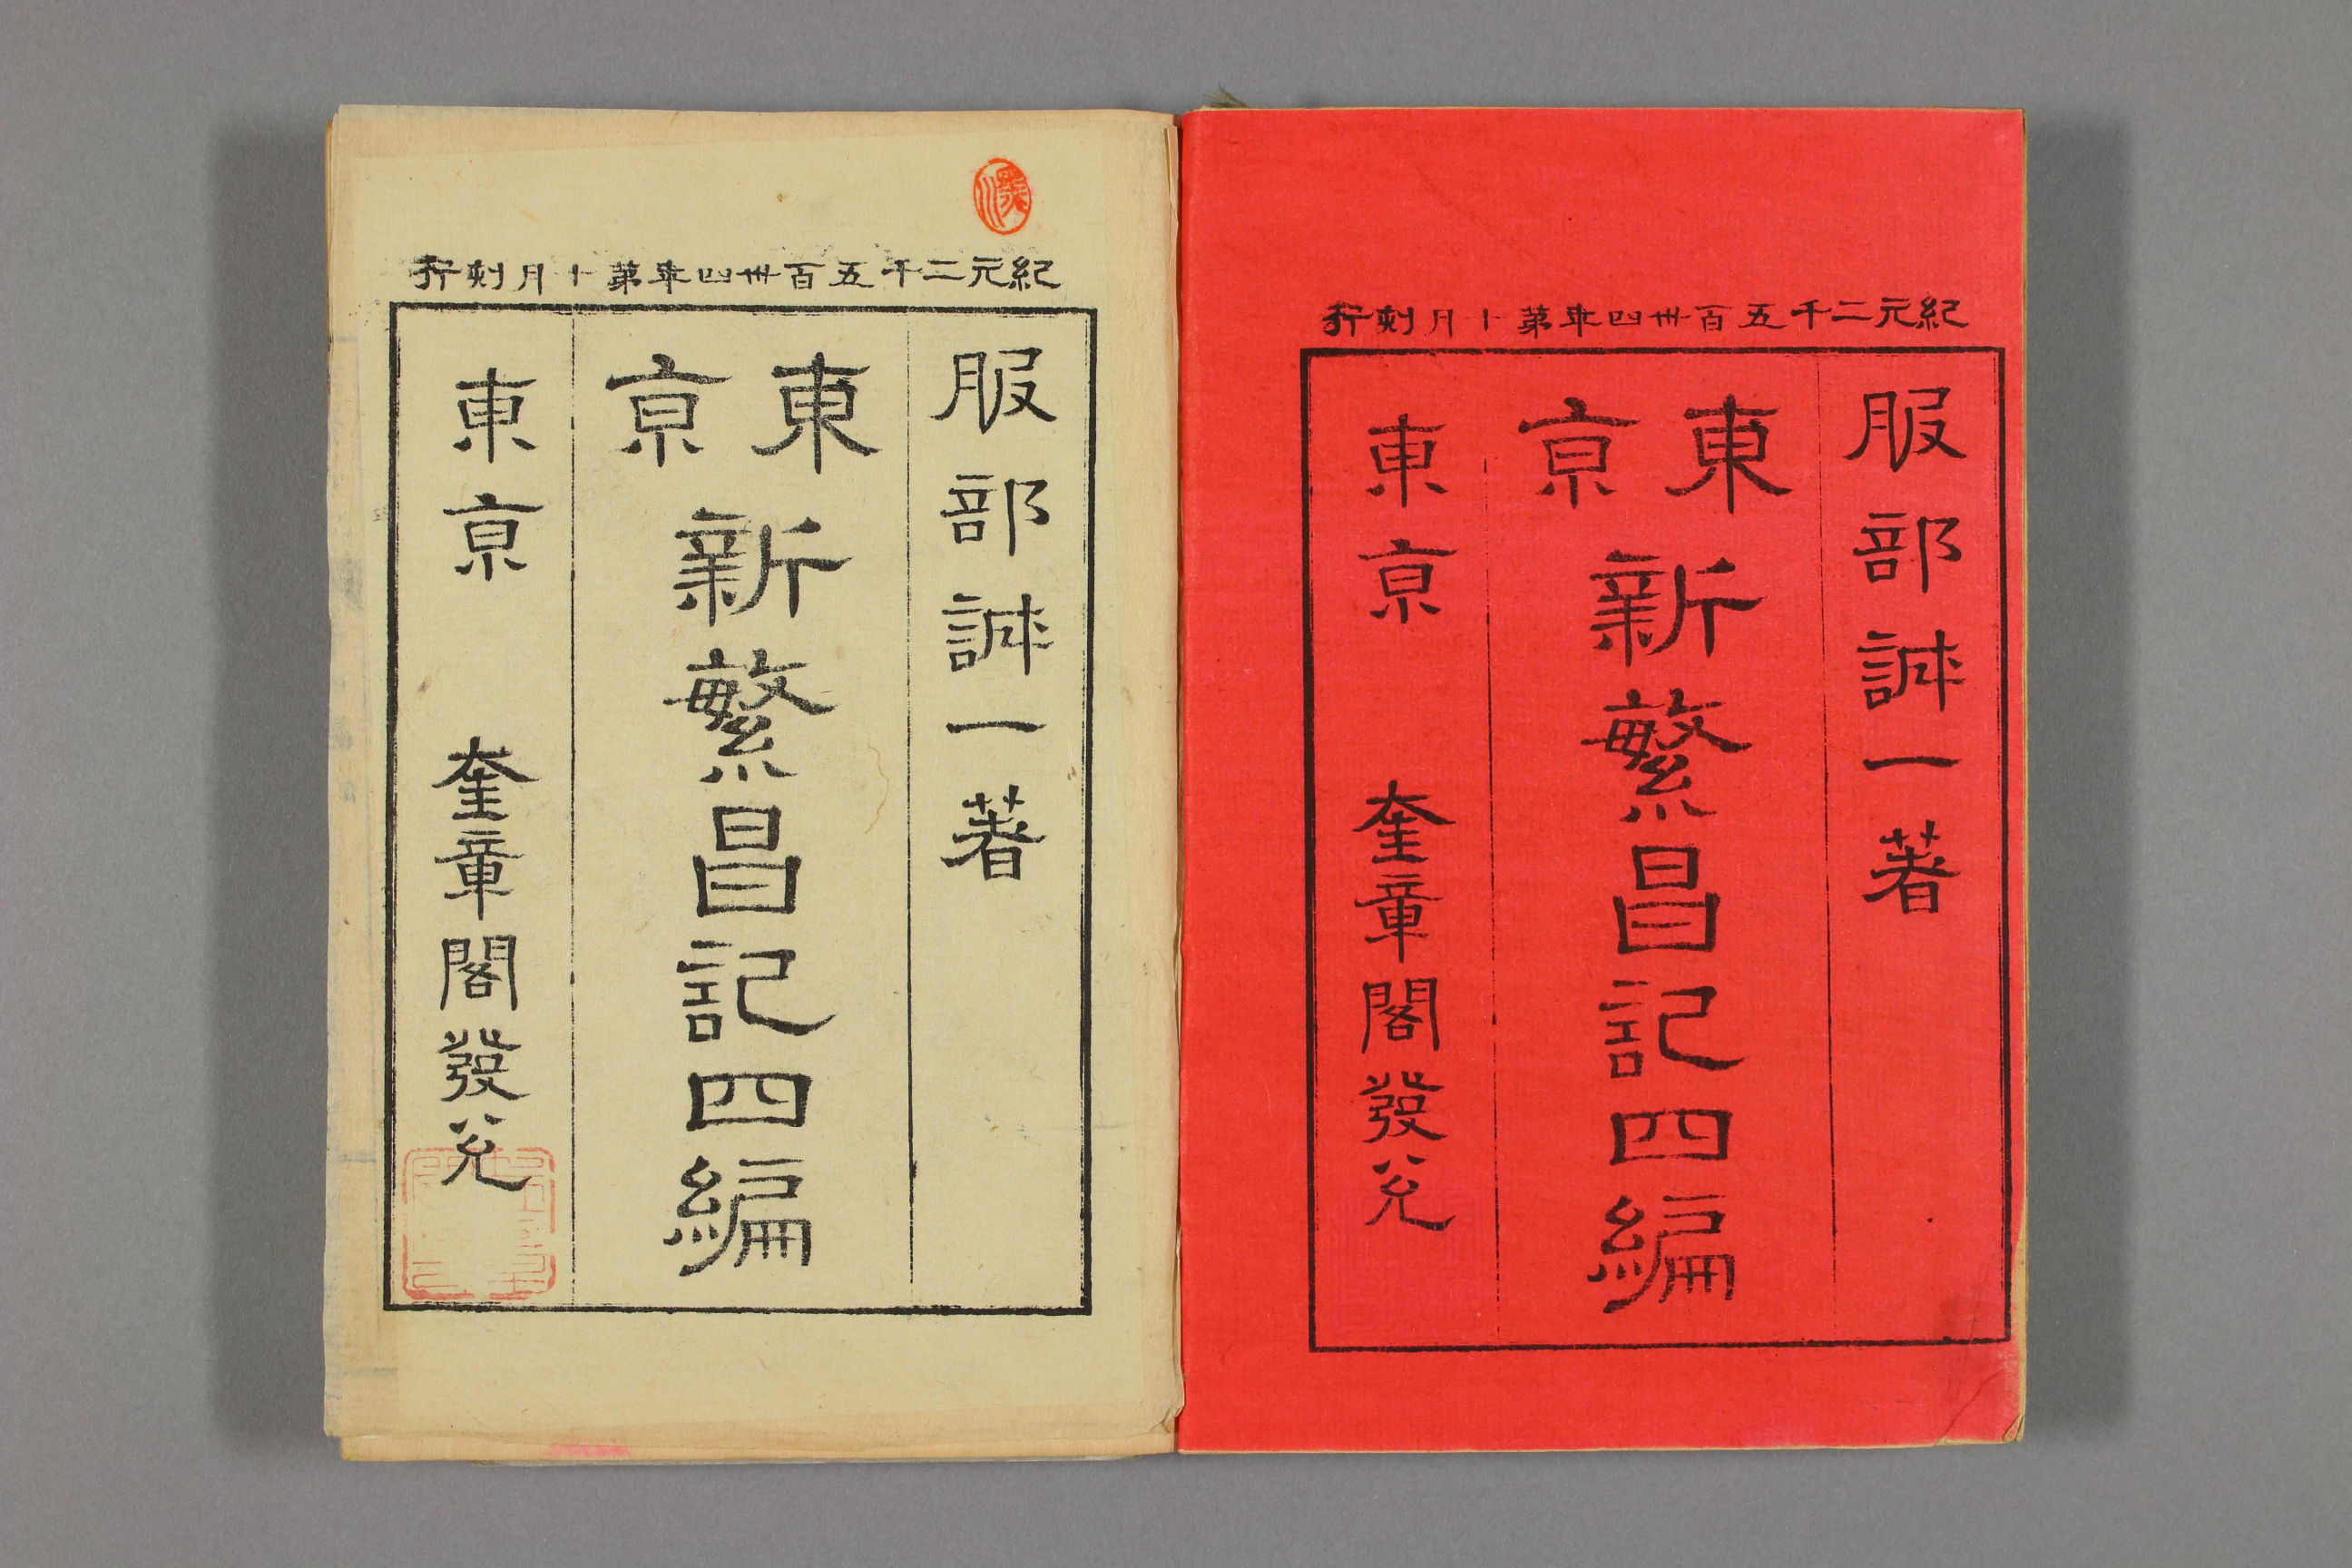 紀元二千五百卅四年第十月刻行
服部誠一著
東京新繁昌記四編
東京　奎章閣發兌
紀元二千五百卅四年第十月刻行
服部誠一著
東京新繁昌記四編
東京　奎章閣發兌